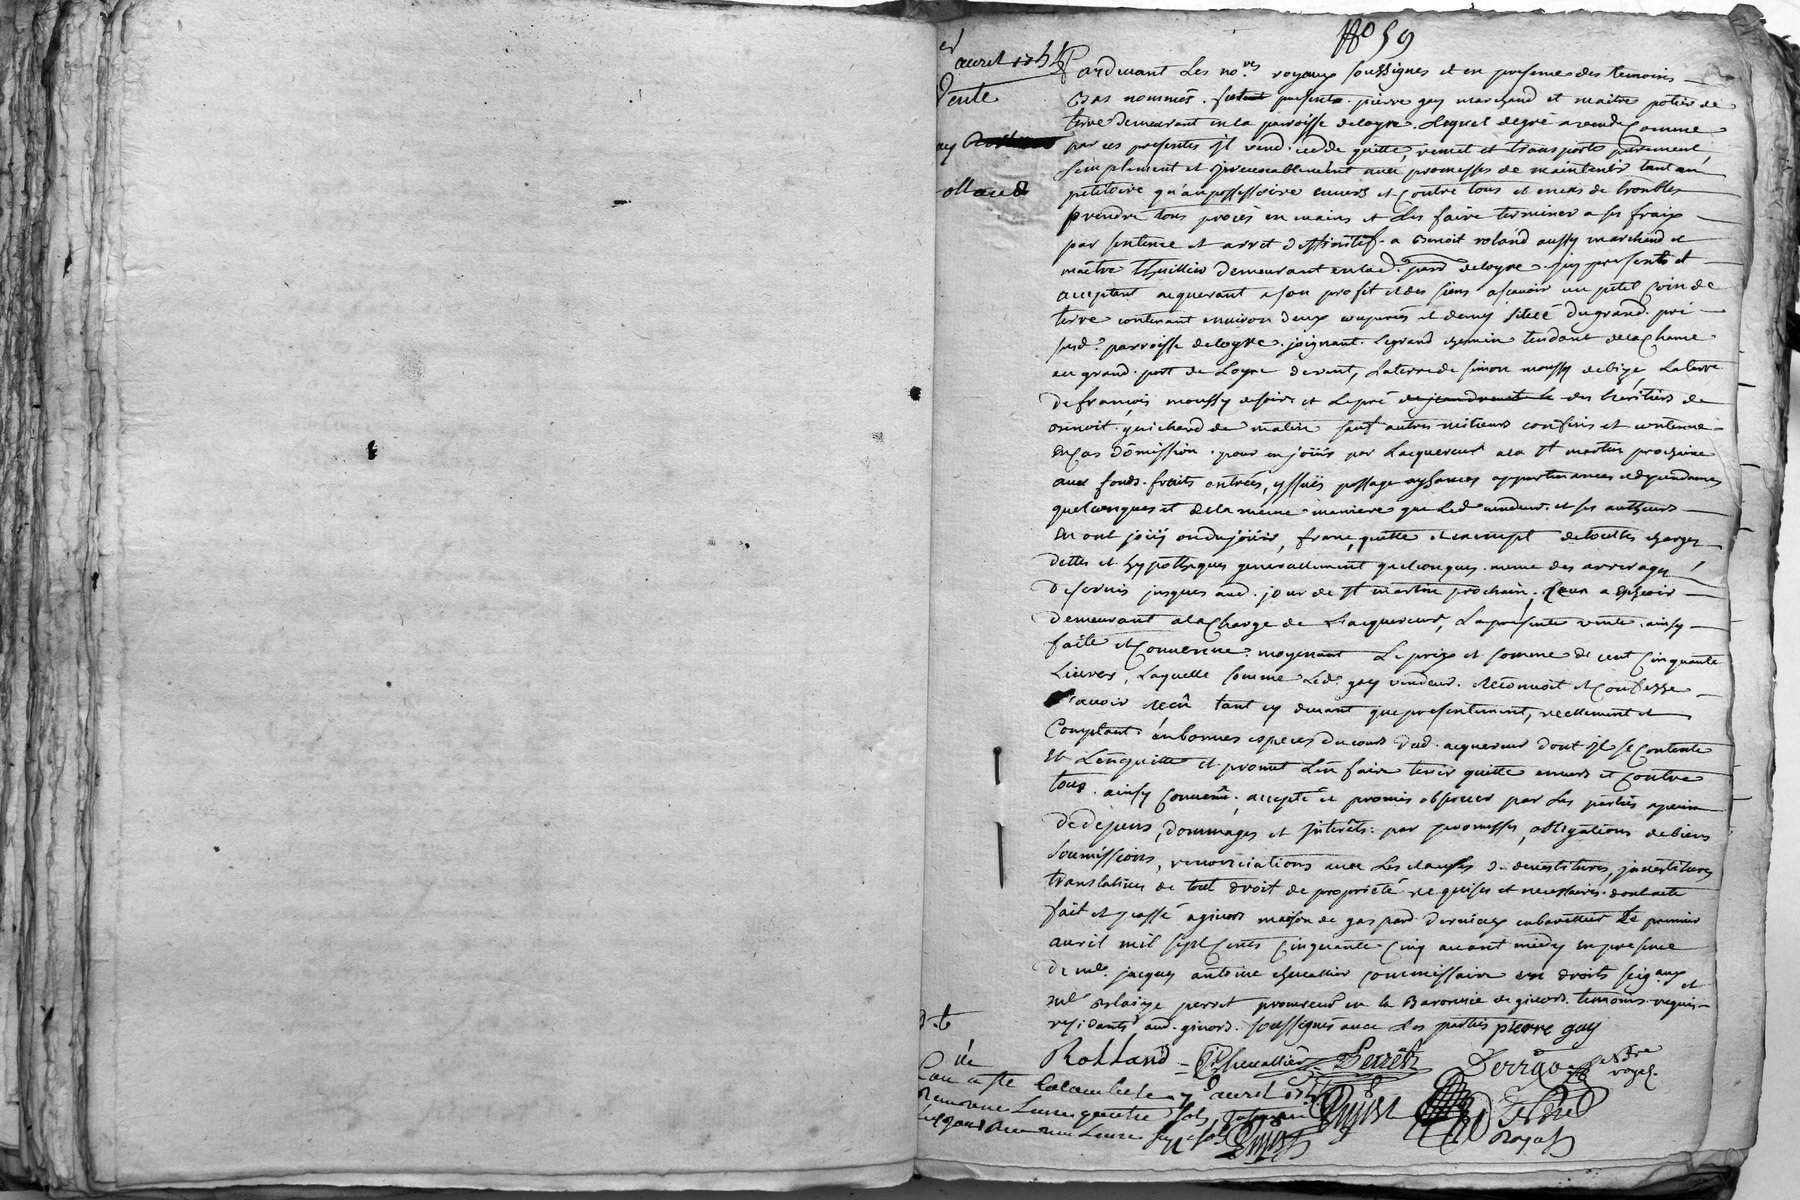 No 59
er avril 1755
Vente
ay
olland
Pardevant les no.res royaux soussignes et en presence des temoins
Bas nommés. furent presents. pierre gay marchand et maitre potier de
terre demeurant en la parroisse de loyre. lequel degré a vendu comme
par ces presentes il vend. cede quitte, remet et transporte purement,
simplement et irrevocablement avec promesses de maintenir tant au
petitoire qu'au possessoire envers et contre tous et en cas de troubles
prendre tous procès en mains et les faire terminer a ses fraix
par sentence et arret deffinitif. a Benoit roland aussy marchand et
maitre thuillier demeurant en lad. parr. de loyre. icy present et
acceptant acquerant a son profit et des siens ascavoir un petit coin de
terre contenant environ deux coupeés et demy situé du grand pré
susd. parroisse de loyre. joignant. le grand chemin tendant de la chane
au grand. port de Loyre de vent, la terre de simon moussy de bize, la terre
de francois moussy de soir et le pré des héritiers de
benoit guichard de matin sauf autres meilleurs confins et contenue
en cas d'omission. pour en joüir par l'acquereur a la st martin prochaine
avec fonds. fruits entrées, yssuës passage aysances appartenances et dependances
quelconques et de la meme maniere que led. vendeur. et ses autheurs
en ont joüy ou du joüir, franc, quitte et exempt de touttes charges
dettes et hypotheques generallement quelconques. meme des arrerages
de servis jusques aud. jour de st martin prochain, ceux a escheoir
demeurant a la charge de l'acquereur, la presente vente. ainsy
faite et convenue. moyenant le prix et somme de cent cinquante
Livres, laquelle somme led. gay vendeur. reconnoit et confesse
avoir recû tant cy devant que presentement, reellement et
comptant. en bonnes especes du cours dud. acquereur dont il se contente
et l'en quitte et promet l'en faire tenir quitte envers et contre
tous. ainsy convenu, accepté et promis observer par les parties a peine
de depens, dommages et interêts. par promesses, obligations de biens
soumissions, renonciations avec les clauses de devestitures, jnvestitures
translations de tout droit de propriété requises et necessaires. dont acte
fait et passé a givors maison de gaspard cabarettier le premier
avril mil sept cents cinquante cinq avant midy en presence
de me. jacques antoine chevallier commissaire en droits seig.aux et
me blaise perret procureur en la Baronnie de givors. temoins requis
residants aud. givors. soussignés avec les parties pierre gay
Rolland Chevallier Perret Notre royal.